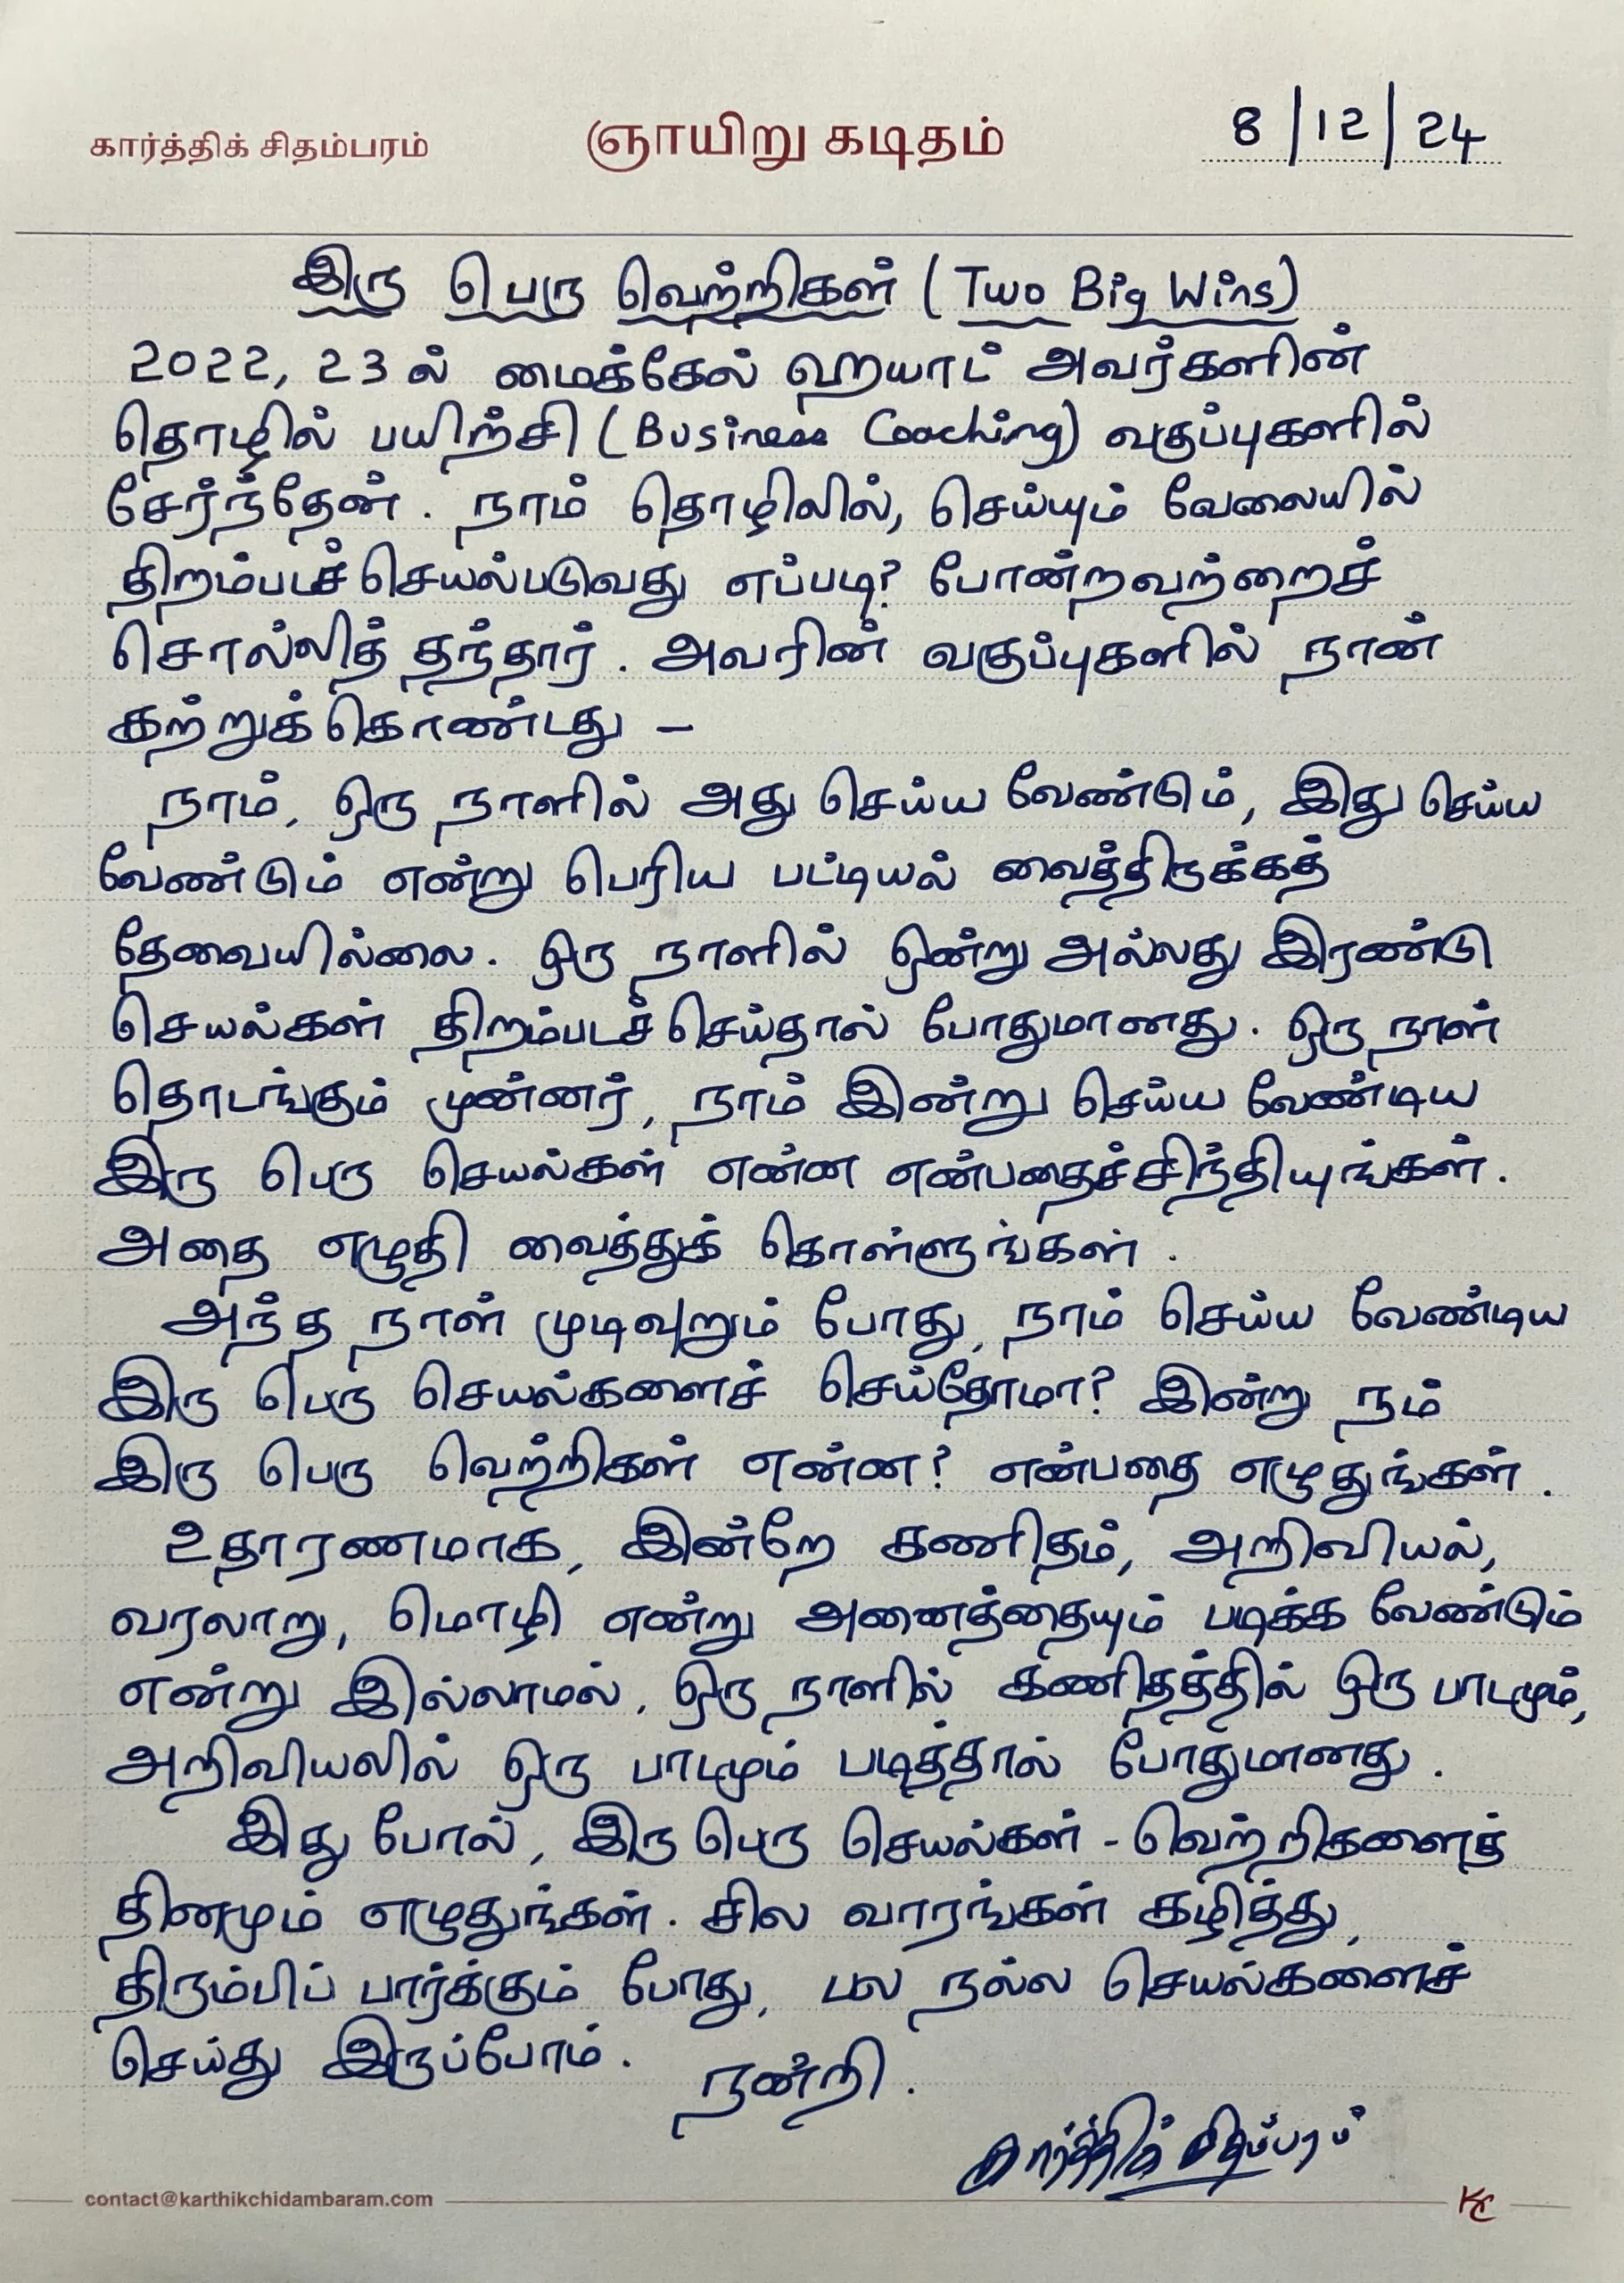 கார்த்திக் சிதம்பரம்
ஞாயிறு கடிதம்
8/12/24
இரு பெரு வெற்றிகள் (Two Big Wins)
2022, 23 ல் மைக்கேல் ஹயாட் அவர்களின்
தொழில் பயிற்சி (Business Coaching) வகுப்புகளில்
சேர்ந்தேன். நாம் தொழிலில், செய்யும் வேலையில்
திறம்படச் செயல்படுவது எப்படி? போன்றவற்றைச்
சொல்லித் தந்தார். அவரின் வகுப்புகளில் நான்
கற்றுக் கொண்டது –
நாம், ஒரு நாளில் அது செய்ய வேண்டும், இது செய்ய
வேண்டும் என்று பெரிய பட்டியல் வைத்திருக்கத்
தேவையில்லை. ஒரு நாளில் ஒன்று அல்லது இரண்டு
செயல்கள் திறம்படச் செய்தால் போதுமானது. ஒரு நாள்
தொடங்கும் முன்னர், நாம் இன்று செய்ய வேண்டிய
இரு பெரு செயல்கள் என்ன என்பதைச்சிந்தியுங்கள்.
அதை எழுதி வைத்துக் கொள்ளுங்கள்.
அந்த நாள் முடிவுறும் போது, நாம் செய்ய வேண்டிய
இரு பெரு செயல்களைச் செய்தோமா? இன்று நம்
இரு பெரு வெற்றிகள் என்ன? என்பதை எழுதுங்கள்.
உதாரணமாக, இன்றே கணிதம், அறிவியல்,
வரலாறு, மொழி என்று அனைத்தையும் படிக்க வேண்டும்
என்று இல்லாமல், ஒரு நாளில் கணிதத்தில் ஒரு பாடமும்,
அறிவியலில் ஒரு பாடமும் படித்தால் போதுமானது.
இது போல், இரு பெரு செயல்கள் - வெற்றிகளைத்
தினமும் எழுதுங்கள். சில வாரங்கள் கழித்து,
திரும்பிப் பார்க்கும் போது, பல நல்ல செயல்களைச்
செய்து இருப்போம்.
நன்றி.
கார்த்திக் சிதம்பரம்
contact@karthikchidambaram.com
KC